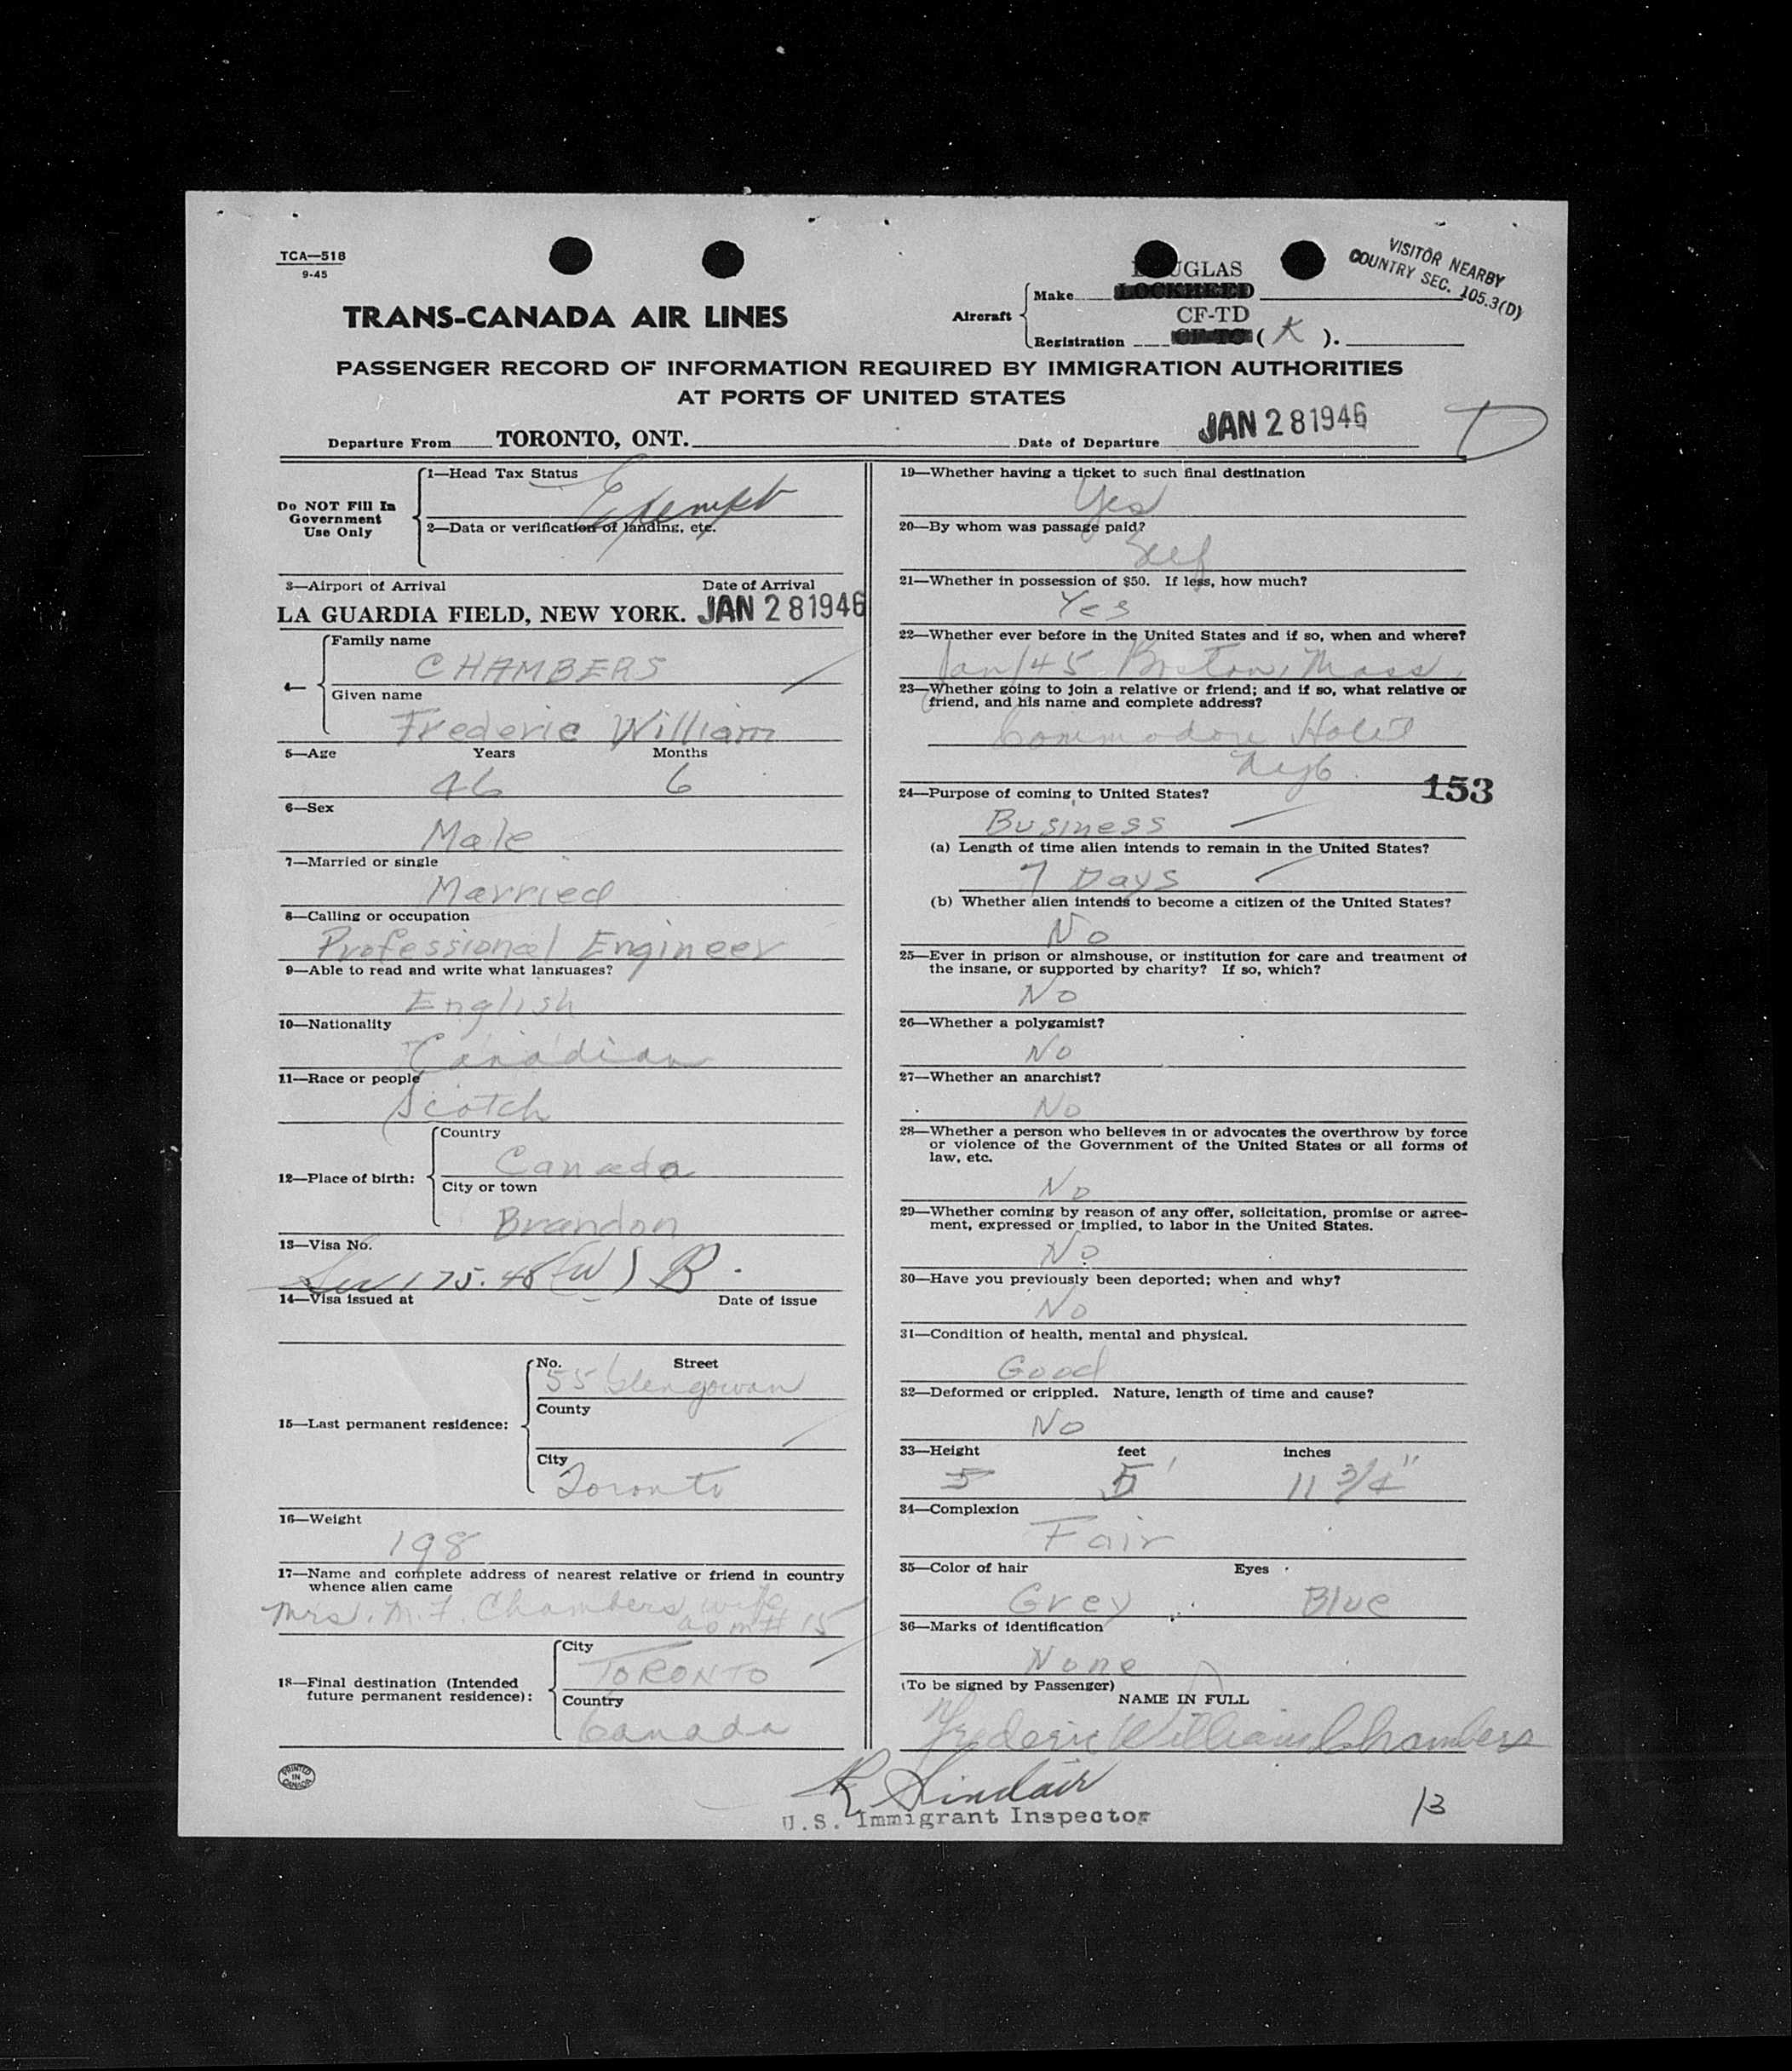 TCA—518
9-45
VISITOR NEARBY
COUNTRY SEC. 105.3(D)
TRANS-CANADA AIR LINES
Aircraft
Make
DOUGLAS
LOCKHEED
CF-TD
Registration CF-TC ( K ).
PASSENGER RECORD OF INFORMATION REQUIRED BY IMMIGRATION AUTHORITIES
AT PORTS OF UNITED STATES
Departure From TORONTO, ONT. Date of Departure JAN 28 1946
D
Do NOT Fill In
Government
Use Only
1—Head Tax Status
Exempt
2—Data or verification of landing, etc.
3—Airport of Arrival Date of Arrival
LA GUARDIA FIELD, NEW YORK. JAN 28 1946
4—
Family name
CHAMBERS
Given name
Frederic William
5—Age Years Months
46 6
6—Sex
Male
7—Married or single
Married
8—Calling or occupation
Professional Engineer
9—Able to read and write what languages?
English
10—Nationality
Canadian
11—Race or people
Scotch
12—Place of birth:
Country
Canada
City or town
Brandon
13—Visa No.
175.45 (W) B.
14—Visa issued at Date of issue
15—Last permanent residence:
No. Street
55 Glengowan
County
City
Toronto
16—Weight
198
17—Name and complete address of nearest relative or friend in country
whence alien came
Mrs. M.F. Chambers wife
as in # 15
18—Final destination (Intended
future permanent residence):
City
TORONTO
Country
Canada
PRINTED IN CANADA
19—Whether having a ticket to such final destination
Yes
20—By whom was passage paid?
Self
21—Whether in possession of $50. If less, how much?
Yes
22—Whether ever before in the United States and if so, when and where?
Jan/45 Boston, Mass.
23—Whether going to join a relative or friend; and if so, what relative or
friend, and his name and complete address?
Commodore Hotel
153
24—Purpose of coming to United States?
Business
(a) Length of time alien intends to remain in the United States?
7 Days
(b) Whether alien intends to become a citizen of the United States?
No
25—Ever in prison or almshouse, or institution for care and treatment of
the insane, or supported by charity? If so, which?
No
26—Whether a polygamist?
No
27—Whether an anarchist?
No
28—Whether a person who believes in or advocates the overthrow by force
or violence of the Government of the United States or all forms of
law, etc.
No
29—Whether coming by reason of any offer, solicitation, promise or agree-
ment, expressed or implied, to labor in the United States.
No
30—Have you previously been deported; when and why?
No
31—Condition of health, mental and physical.
Good
32—Deformed or crippled. Nature, length of time and cause?
No
33—Height feet inches
5 5' 11 3/4"
34—Complexion
Fair
35—Color of hair Eyes
Grey Blue
36—Marks of identification
None
(To be signed by Passenger)
NAME IN FULL
Frederic William Chambers
R Sinclair
U.S. Immigrant Inspector
13